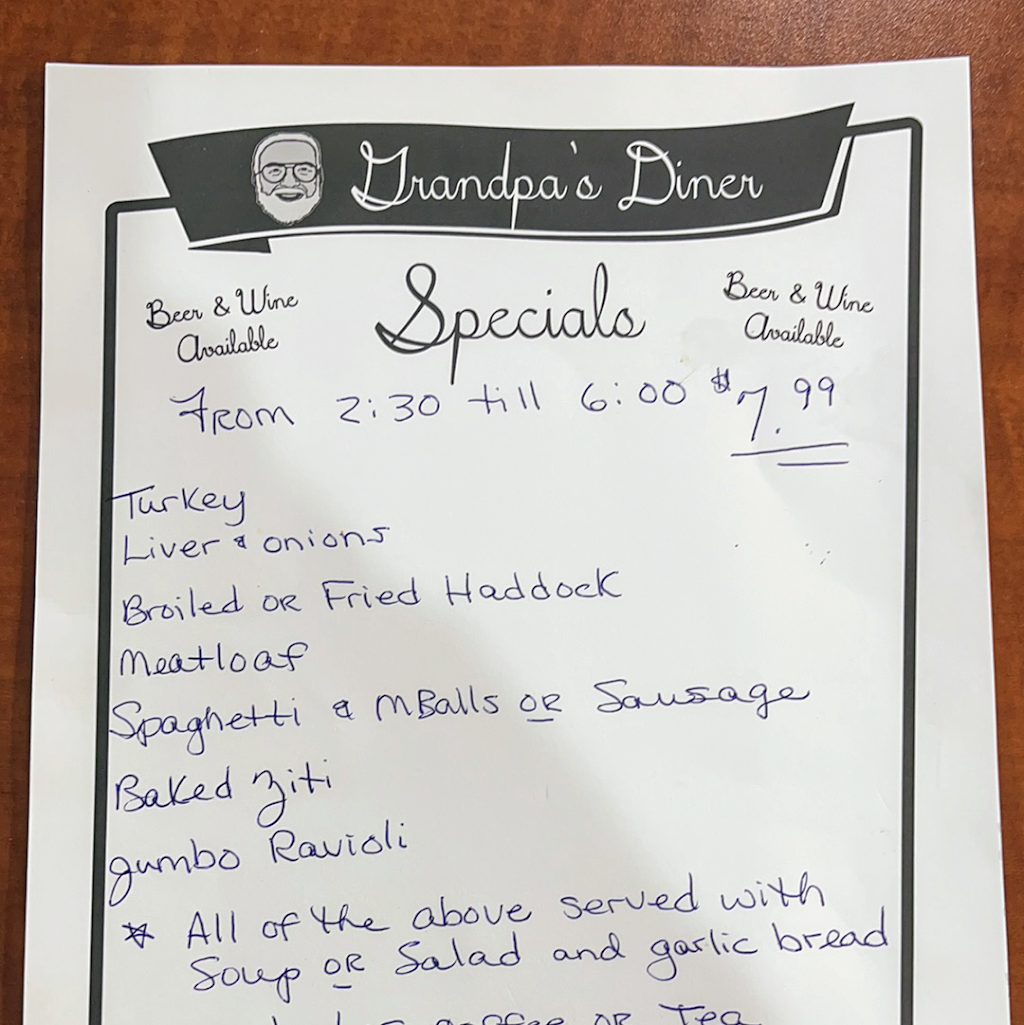 Grandpa's Diner
Beer & Wine
Available
Specials
Beer & Wine
Available
From 2:30 till 6:00 $7.99
Turkey
Liver & onions
Broiled OR Fried Haddock
Meatloaf
Spaghetti & MBalls OR Sausage
Baked Ziti
gumbo Ravioli
* All of the above served with
Soup OR Salad and garlic bread
coffee OR Tea